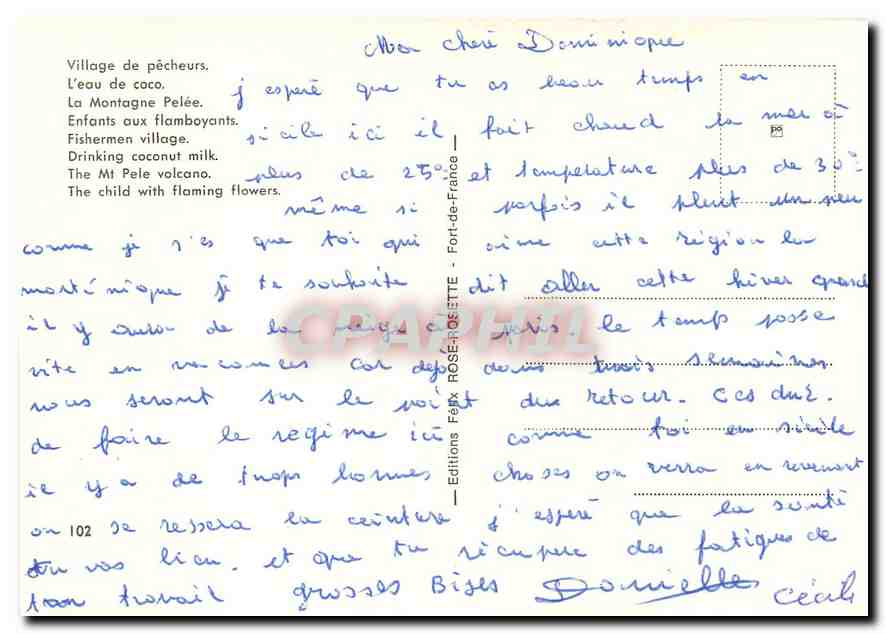 Village de pêcheurs.
L'eau de coco.
La Montagne Pelée.
Enfants aux flamboyants.
Fishermen village.
Drinking coconut milk.
The Mt Pele volcano.
The child with flaming flowers.
Editions Félix ROSE-ROSETTE - Fort-de-France
CPAPHIL
Mon cheré Dominique
j esperé que tu as beau temps en
sicile ici il fait chaud la mer à
plus de 25° et température plus de 30°
même si parfois il pleut un peu
comme je s'es que toi qui aime cette région la
martinique je te souhaite dit aller cette hiver quand
il y aura de la neige à paris. le temps passe
vite en vacances car dejà dans trois semaines
nous seront sur le point du retour. Ces dur.
de faire le regime ici comme toi en sicile
il y a de trops bonnes choses on verra en revenant
on 102 se ressera la ceinture j'esperé que la santé
tu vas bien. et que tu récupere des fatigues de
ton travail grosses Bises Danielle Cécile